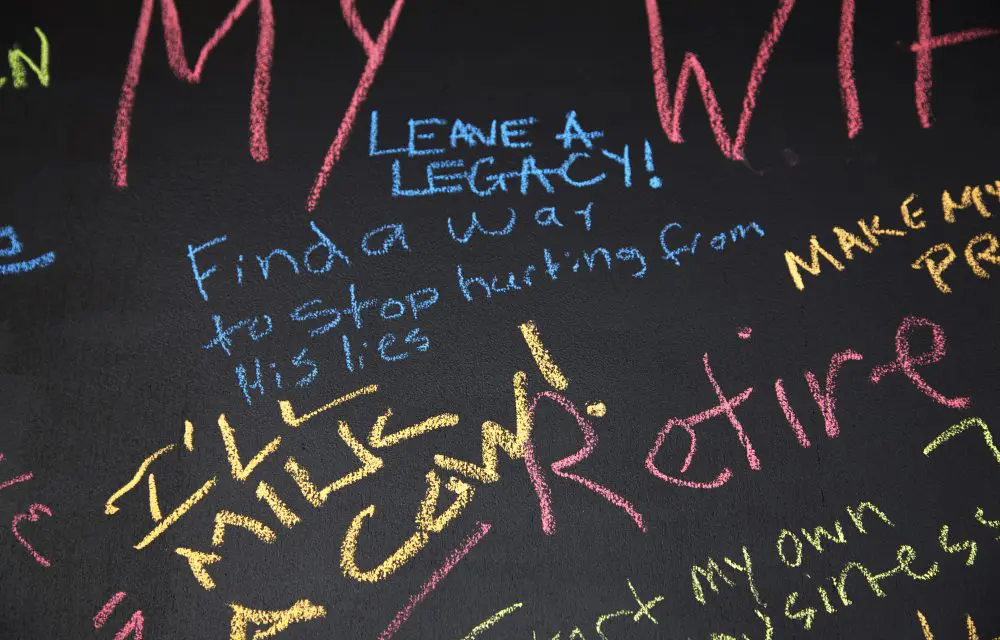 MY WI
LEAVE A
LEGACY!
Find a way
to stop hurting from
His lies
MAKE MY
PR
I'LL
MILK
a
COW!
Retire
my own